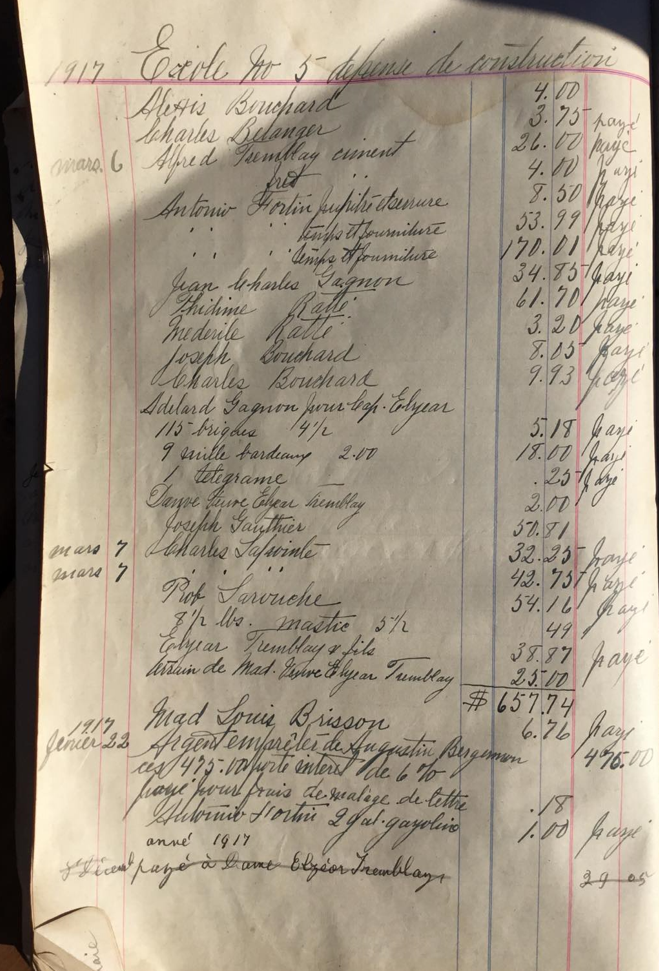 1917 École No 5 defense de construction
Alexis Bouchard 4.00
Charles Belanger 3.75 payé
mars. 6 Alfred Tremblay ciment 26.00 payé
fret " " 4.00 payé
Antonio Fortin pupitre et serrure 8.50 payé
" " " temps et fourniture 53.99 payé
" " " temps et fourniture 170.01 payé
Jean Charles Gagnon 34.85 payé
Ratté 61.70 payé
Mederile Ratté 3.20 payé
Joseph Bouchard 8.05 payé
Charles Bouchard 9.93 payé
Adelard Gagnon pour Cap. Elyear
115 briques 4½ 5.18 payé
9 mille bardeaux 2.00 18.00 payé
1 telegrame .25 payé
Veuve Elyear Tremblay 2.00
Joseph Gauthier 50.81
mars 7 Charles Lapointe 32.25 payé
mars 7 " " 42.75 payé
Rob Larouche 54.16 payé
8½ lbs. mastic 5½ 49
Elyear Tremblay & fils 38.87 payé
de Mad. Veuve Elyear Tremblay 25.00
$ 657.74
1917 Mad Louis Brisson 6.76 payé
février 22 Argent emprêter de Augustin Bergeron 475.00
ces 475.00 porte intéret de 6%
payé pour frais de malage de lettre .18
Antonio Fortin 2 gal. gazoline 1.00 payé
anné 1917
payé à Dame Elyéor Tremblay 39 05